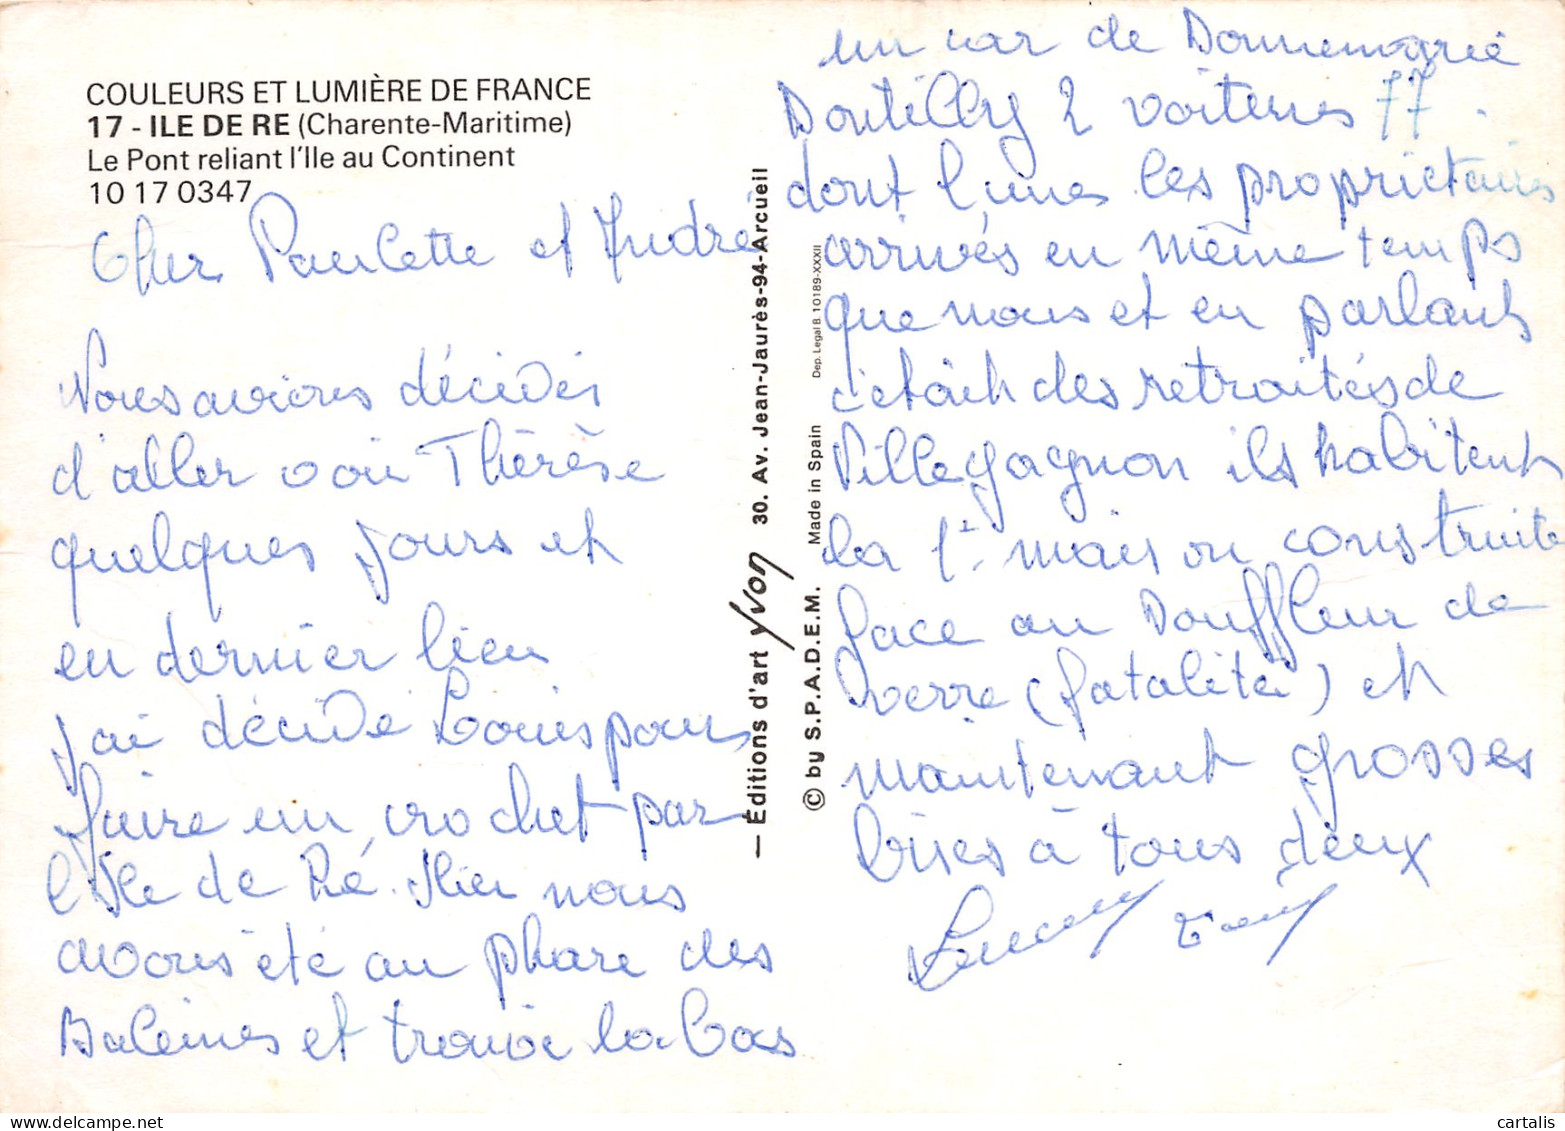 COULEURS ET LUMIÈRE DE FRANCE
17 - ILE DE RE (Charente-Maritime)
Le Pont reliant l'Ile au Continent
10 17 0347
Cher Paulette et André
Nous avions décidés
d'aller voir Thérèse
quelques jours et
en dernier lieu
j'ai décidé Louis pour
faire un crochet par
l'Ile de Ré. Hier nous
avons été au phare des
Baleines et trouvé la bas
— Éditions d'art Yvon 30. Av. Jean-Jaurès-94-Arcueil
© by S.P.A.D.E.M. Made in Spain Dep. Legal B. 10189-XXXII
un car de Donnemarie
Dontilly 2 voitures 77
dont l'unes les propriétaires
arrivés en même temps
que nous et en parlant
c'etait des retraités de
Villegagnon ils habitent
la 1è maison construite
face au Souffleur de
verre (fatalité) et
maintenant grosses
bises à tous deux
cartalis